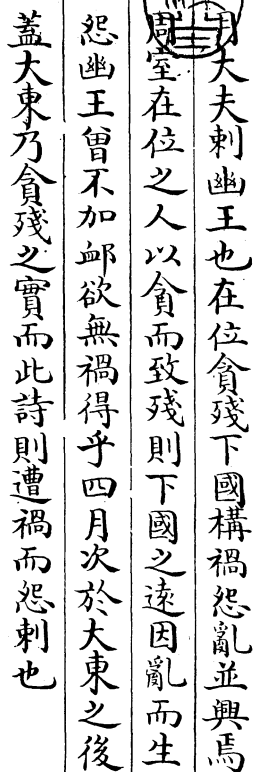 月大夫刺幽王也在位貪殘下國構禍怨亂並興焉
周室在位之人以貪而致殘則下國之遠因亂而生
怨幽王曾不加䘏欲無禍得乎四月次於大東之後
蓋大東乃貪殘之實而此詩則遭禍而怨刺也